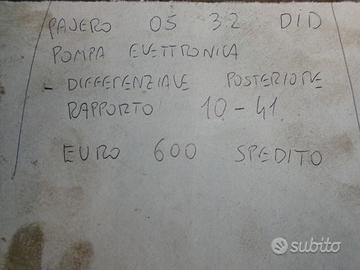 PAJERO 05 32 DID
POMPA ELETTRONICA
- DIFFERENZIALE POSTERIORE
RAPPORTO 10-41
EURO 600 SPEDITO
subito